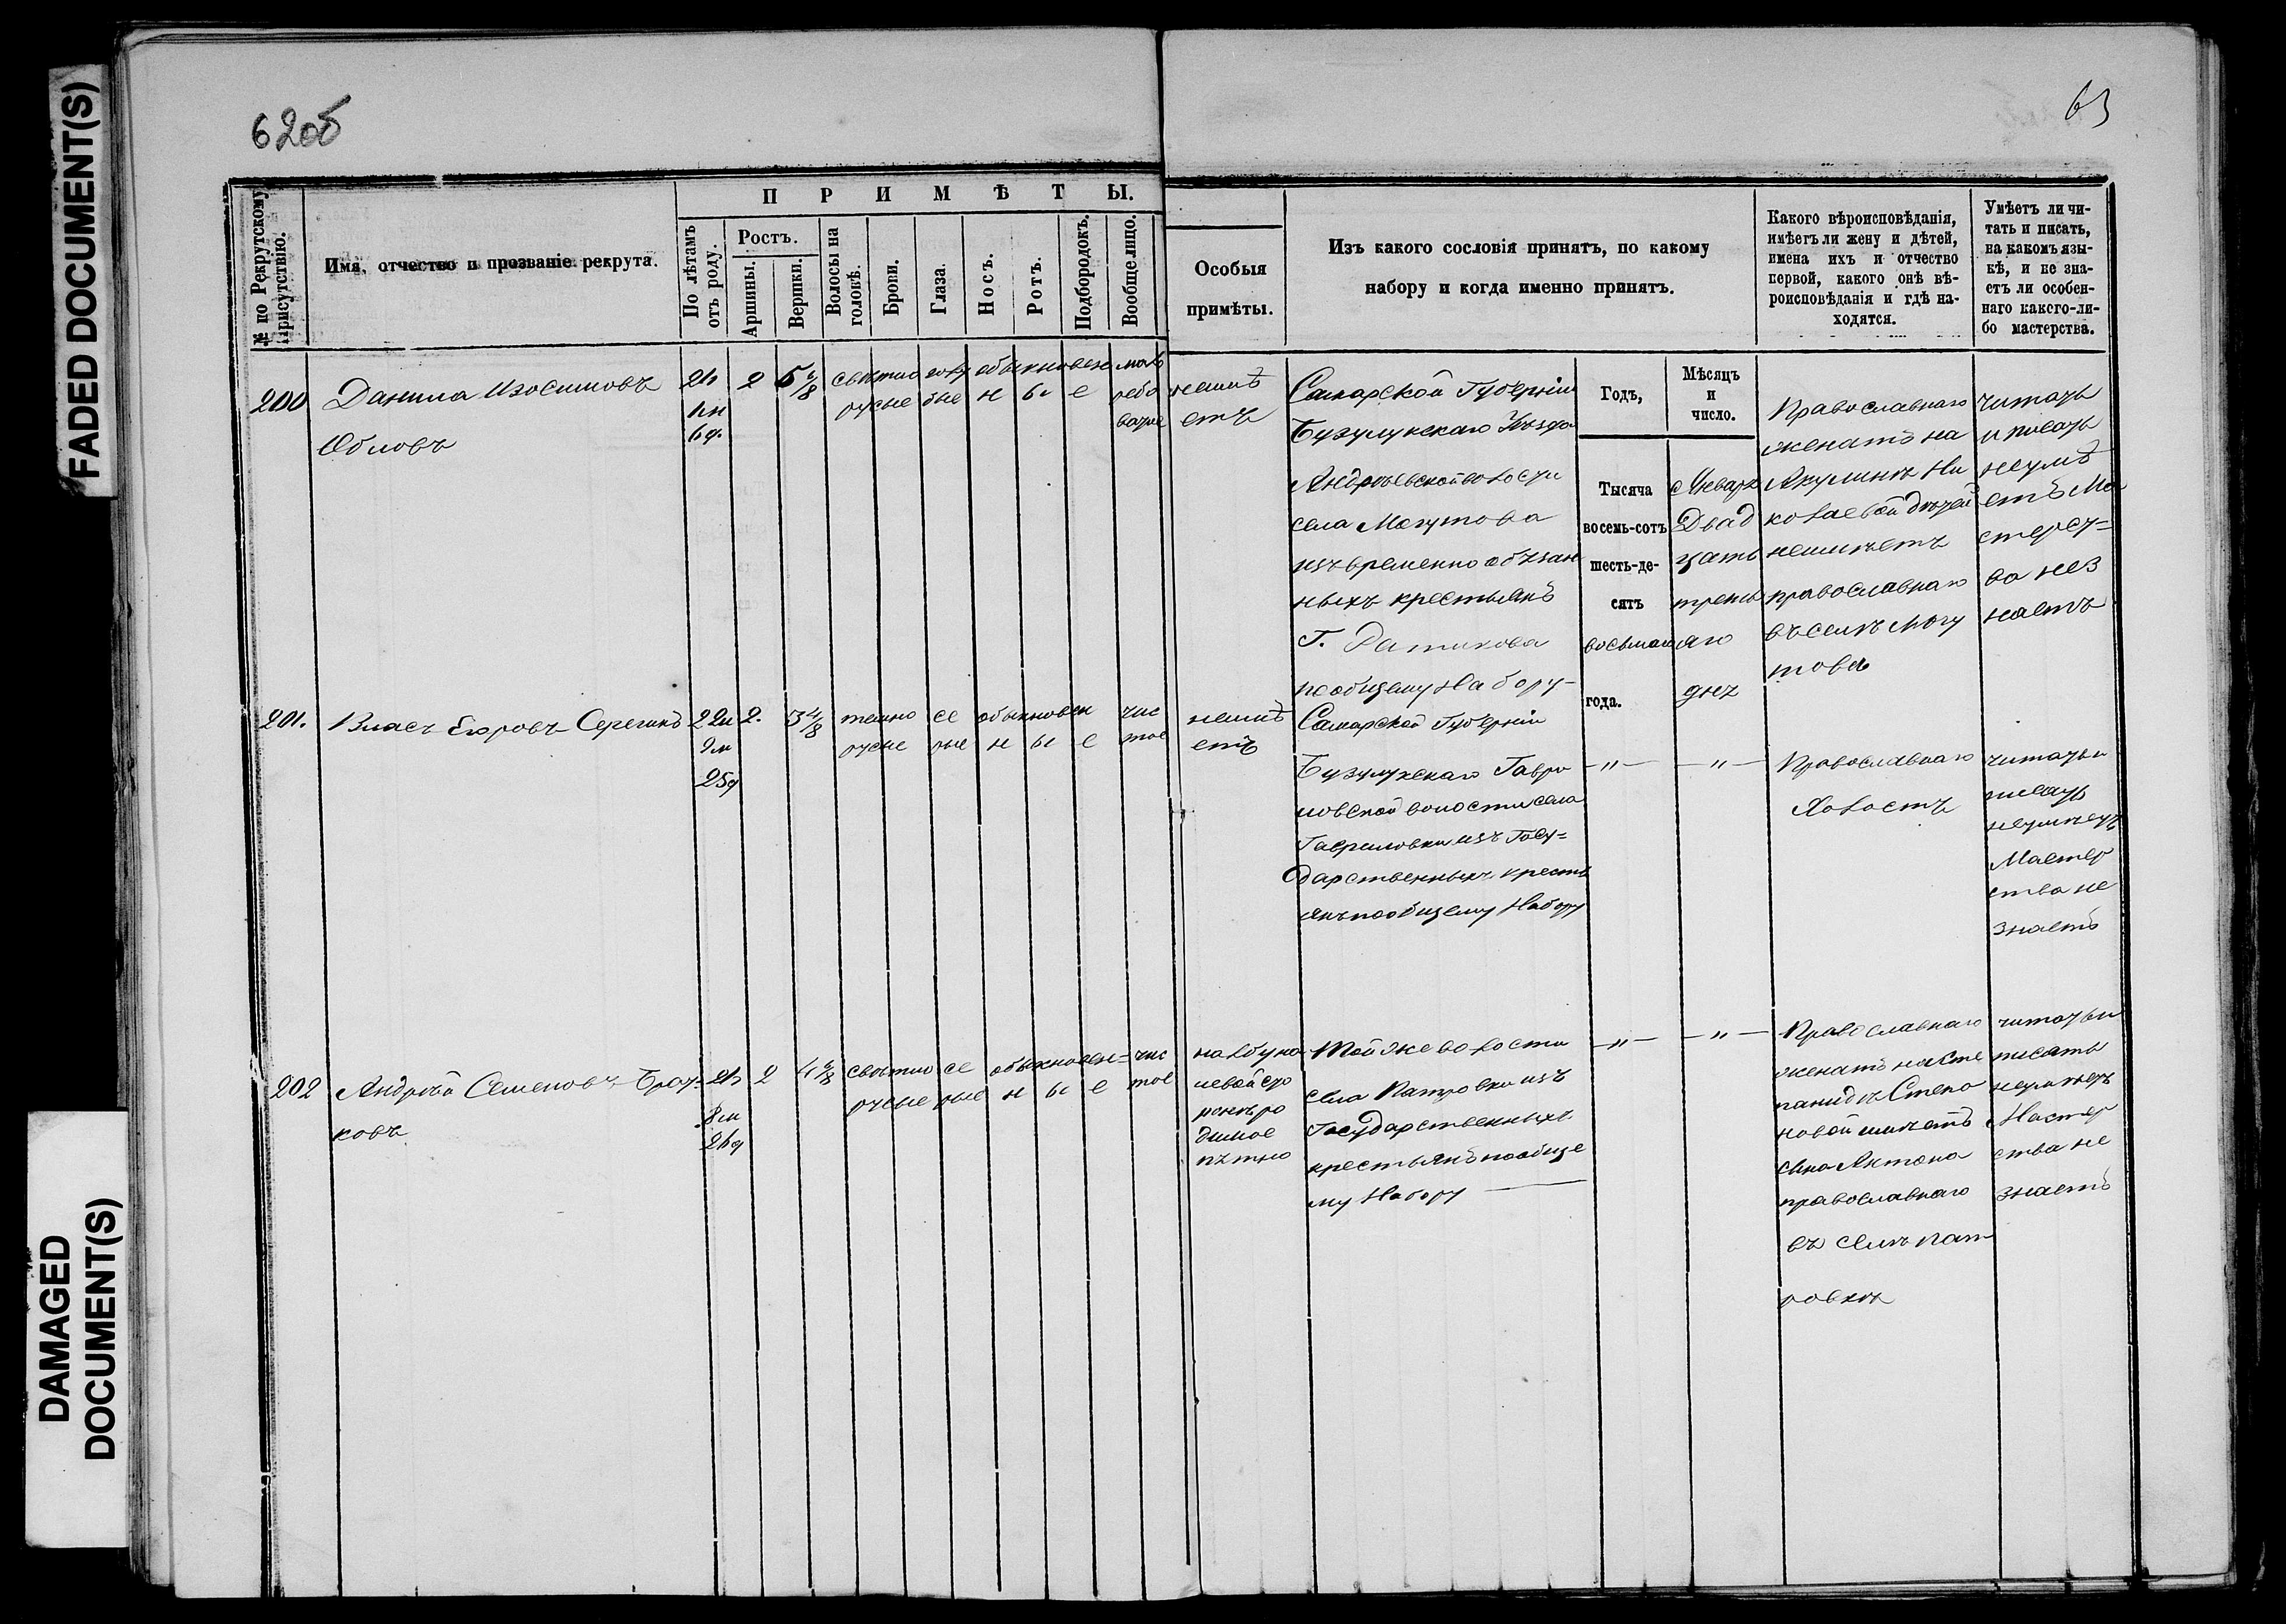 FADED DOCUMENT(S)
DAMAGED
DOCUMENT(S)
62об
63
№ по Рекрутскому
присутствію.
Имя, отчество и прозваніе рекрута.
ПРИМѢТЫ.
По лѣтамъ
отъ роду.
Ростъ.
Аршины.
Вершки.
Волосы на
головѣ.
Брови.
Глаза.
Носъ.
Ротъ.
Подбородокъ.
Вообще лицо.
Особыя
примѣты.
Изъ какого сословія принятъ, по какому
набору и когда именно принятъ.
Какого вѣроисповѣданія,
имѣетъ ли жену и дѣтей,
имена ихъ и отчество
первой, какого онѣ вѣ-
роисповѣданія и гдѣ на-
ходятся.
Умѣетъ ли чи-
тать и писать,
на какомъ язы-
кѣ, и не зна-
етъ ли особен-
наго какого-ли-
бо мастерства.
200
Данила Изосимовъ
2
5
свѣтло
русые
голу
бые
обыкновен
н ы е
неимѣ
етъ
Самарской Губерніи
Бузулукскаго Уѣзда
Андреевской волости
села Могутова
изъ временно обязан
ныхъ крестьянъ
Г.
по общему набору
Годъ,
Мѣсяцъ
и
число.
Тысяча
восемь-сотъ
шесть-де-
сятъ
восьмаго
года.
Января
Двад
цать
треть
яго
дня
Православнаго
женатъ на
Акулинѣ Ни
колаевой дѣтей
неимѣетъ
православнаго
въ селѣ Могу
товѣ
читать
и писать
неумѣ
етъ Ма
стерст=
ва нез
наетъ
201.
Власъ Егоровъ Серегинъ
22л
9м
25д
2.
3 4/8
темно
русые
се
рые
обыкновен
н ы е
чис
тое
неимѣ
етъ
Самарской Губерніи
Бузулукскаго Гаври
ловской волости села
Гавриловки изъ Госу=
дарственныхъ кресть
янъ по общему набору
—"— —"—
Православнаго
Холостъ
читать и
писать
неумѣетъ
Мастер
ства не
знаетъ
202
Андрей Семеновъ
ковъ
8м
2
4
свѣтло
русые
се
рые
обыкновен=
н ы е
чис
тое
на
левой сто
ронѣ ро
димое
пятно
Той же волости
села Патровки изъ
Государственныхъ
крестьянъ по обще
му набору
—"— —"—
Православнаго
женатъ на Сте
панидѣ Степа
новой имѣетъ
сына Антона
православнаго
въ селѣ Пат
ровкѣ
читать и
писать
неумѣетъ
Мастер
ства не
знаетъ